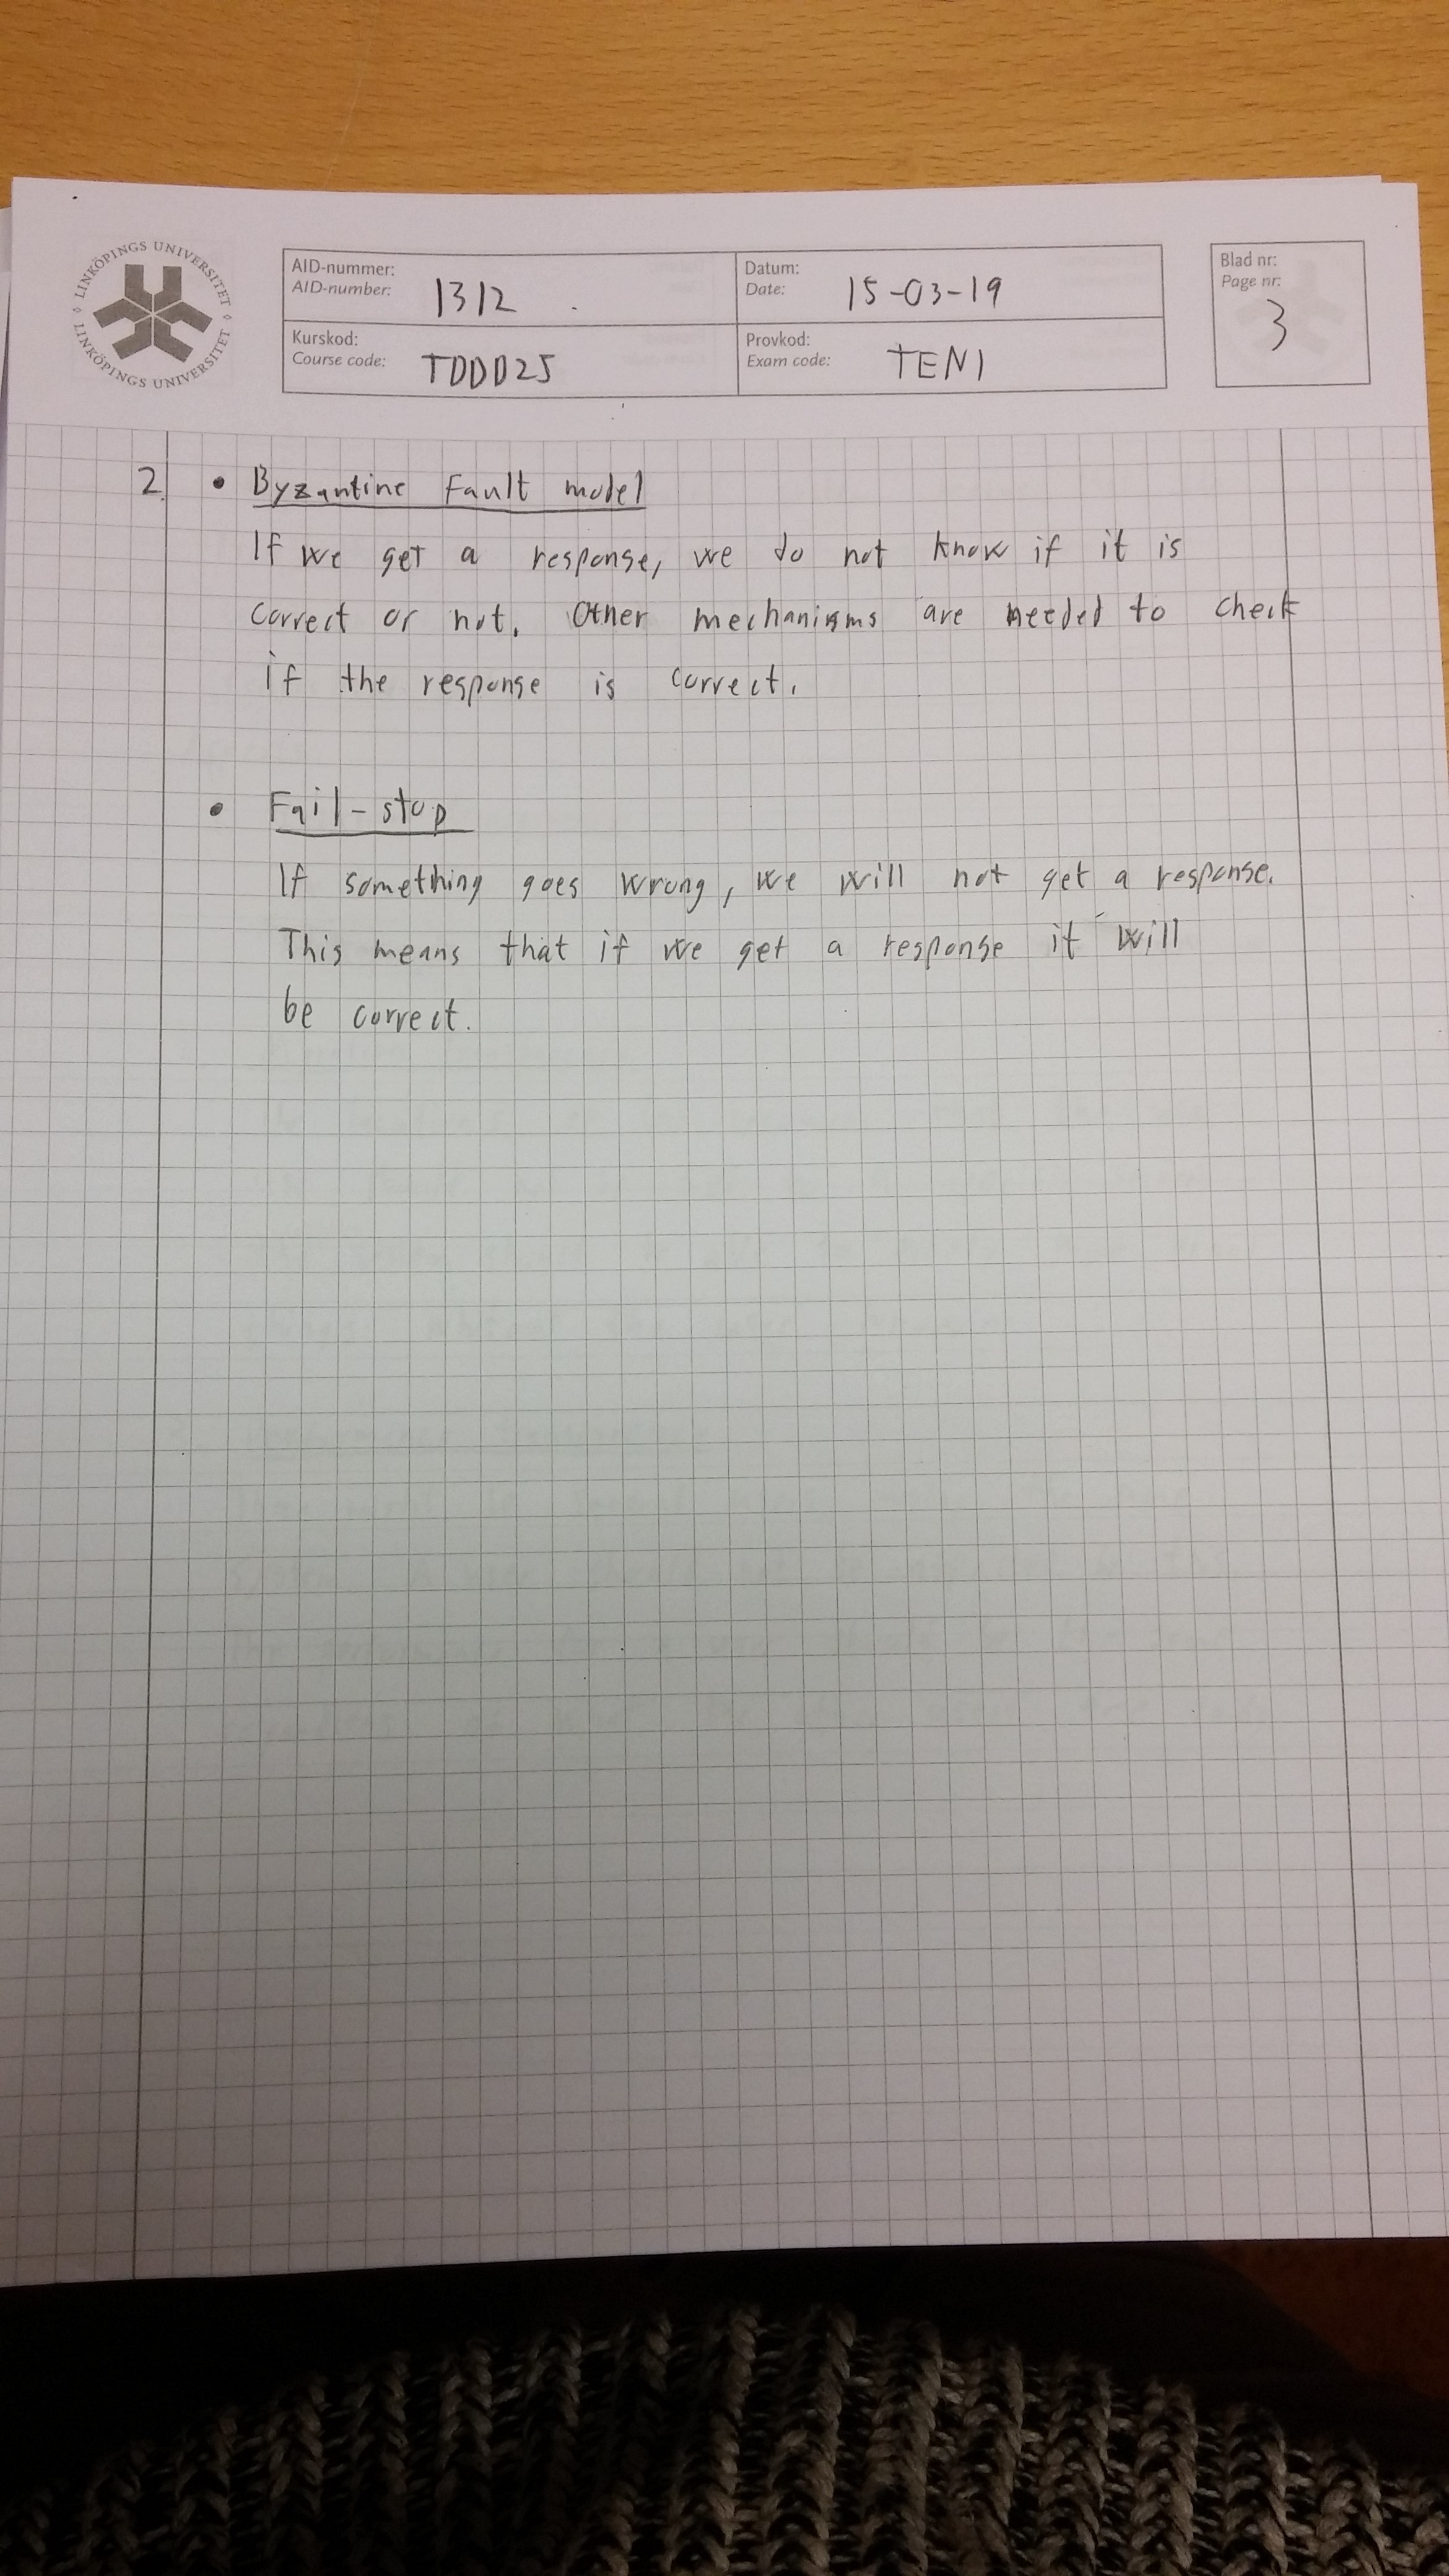 LINKÖPINGS UNIVERSITET
LINKÖPINGS UNIVERSITET
AID-nummer:
AID-number: 1312
Datum:
Date: 15-03-19
Blad nr:
Page nr:
3
Kurskod:
Course code: TDDD25
Provkod:
Exam code: TEN1
2. • Byzantine Fault model
If we get a response, we do not know if it is
correct or not. Other mechanisms are needed to check
if the response is correct.
• Fail-stop
If something goes wrong, we will not get a response.
This means that if we get a response it will
be correct.